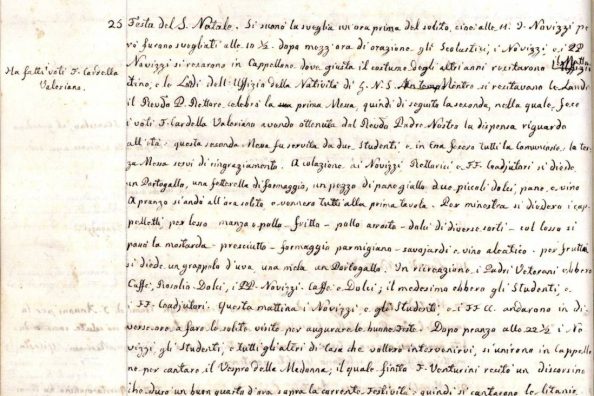 25 Festa del S. Natale. Si suonò la sveglia un'ora prima del solito, cioè alle 11. I Novizzi pe
rò furono svegliati alle 10 ½. dopo mezz'ora di orazione gli Scolastici, i Novizzi e i PP.
Ha fatti i voti F. Cardella
Valeriano.
Novizzi si recarono in Cappellone dove giusta il costume degli altri anni recitarono il Mattu
tino, e le Lodi dell'Uffizio della Natività di G. N. S. Mentre si recitavano le Laudi
il Revdo P. Rettore celebrò la prima Messa, quindi di seguito la seconda, nella quale fece
i voti F. Cardella Valeriano avendo ottenuta dal Revdo Padre Nostro la dispensa riguardo
all'età: questa seconda Messa fu servita da due Studenti, e in Essa fecero tutti la Comunione, la ter
za Messa servì di ringraziamento. A colazione ai Novizzi Rettorici e FF. Coadjutori si diede
un Portogallo, una fetterella di formaggio, un pezzo di pane giallo due piccoli dolci, pane, e vino
A pranzo si andò all'ora solita e vennero tutti alla prima tavola. Per minestra si diedero i cap
pelletti per lesso manzo e pollo - fritto - pollo arrosto - dolci di diverse sorti - sul lesso si
passò la mostarda - presciutto - formaggio parmigiano - savojardi e vino aleatico - per frutta
si diede un grappolo d'uva, una mela un Portogallo. In ricreazione i Padri Veterani ebbero
Caffè, Rosolio Dolci, i PP. Novizzi Caffè e Dolci; il medesimo ebbero gli Studenti, e
i FF. Coadjutori. Questa mattina i Novizzi e gli Studenti, e i FF. CC. andarono in di
verse ore a fare le solite visite per augurare le buone Feste. Dopo pranzo alle 22 ½ i No
vizzi, gli Studenti, e tutti gli altri di Casa che vollero intervenirvi, si unirono in Cappello
ne per cantare il Vespro della Madonna, il quale finito F. Venturini recitò un discorsino
che durò un buon quarto d'ora sopra la corrente Festività e quindi si cantarono le litanie